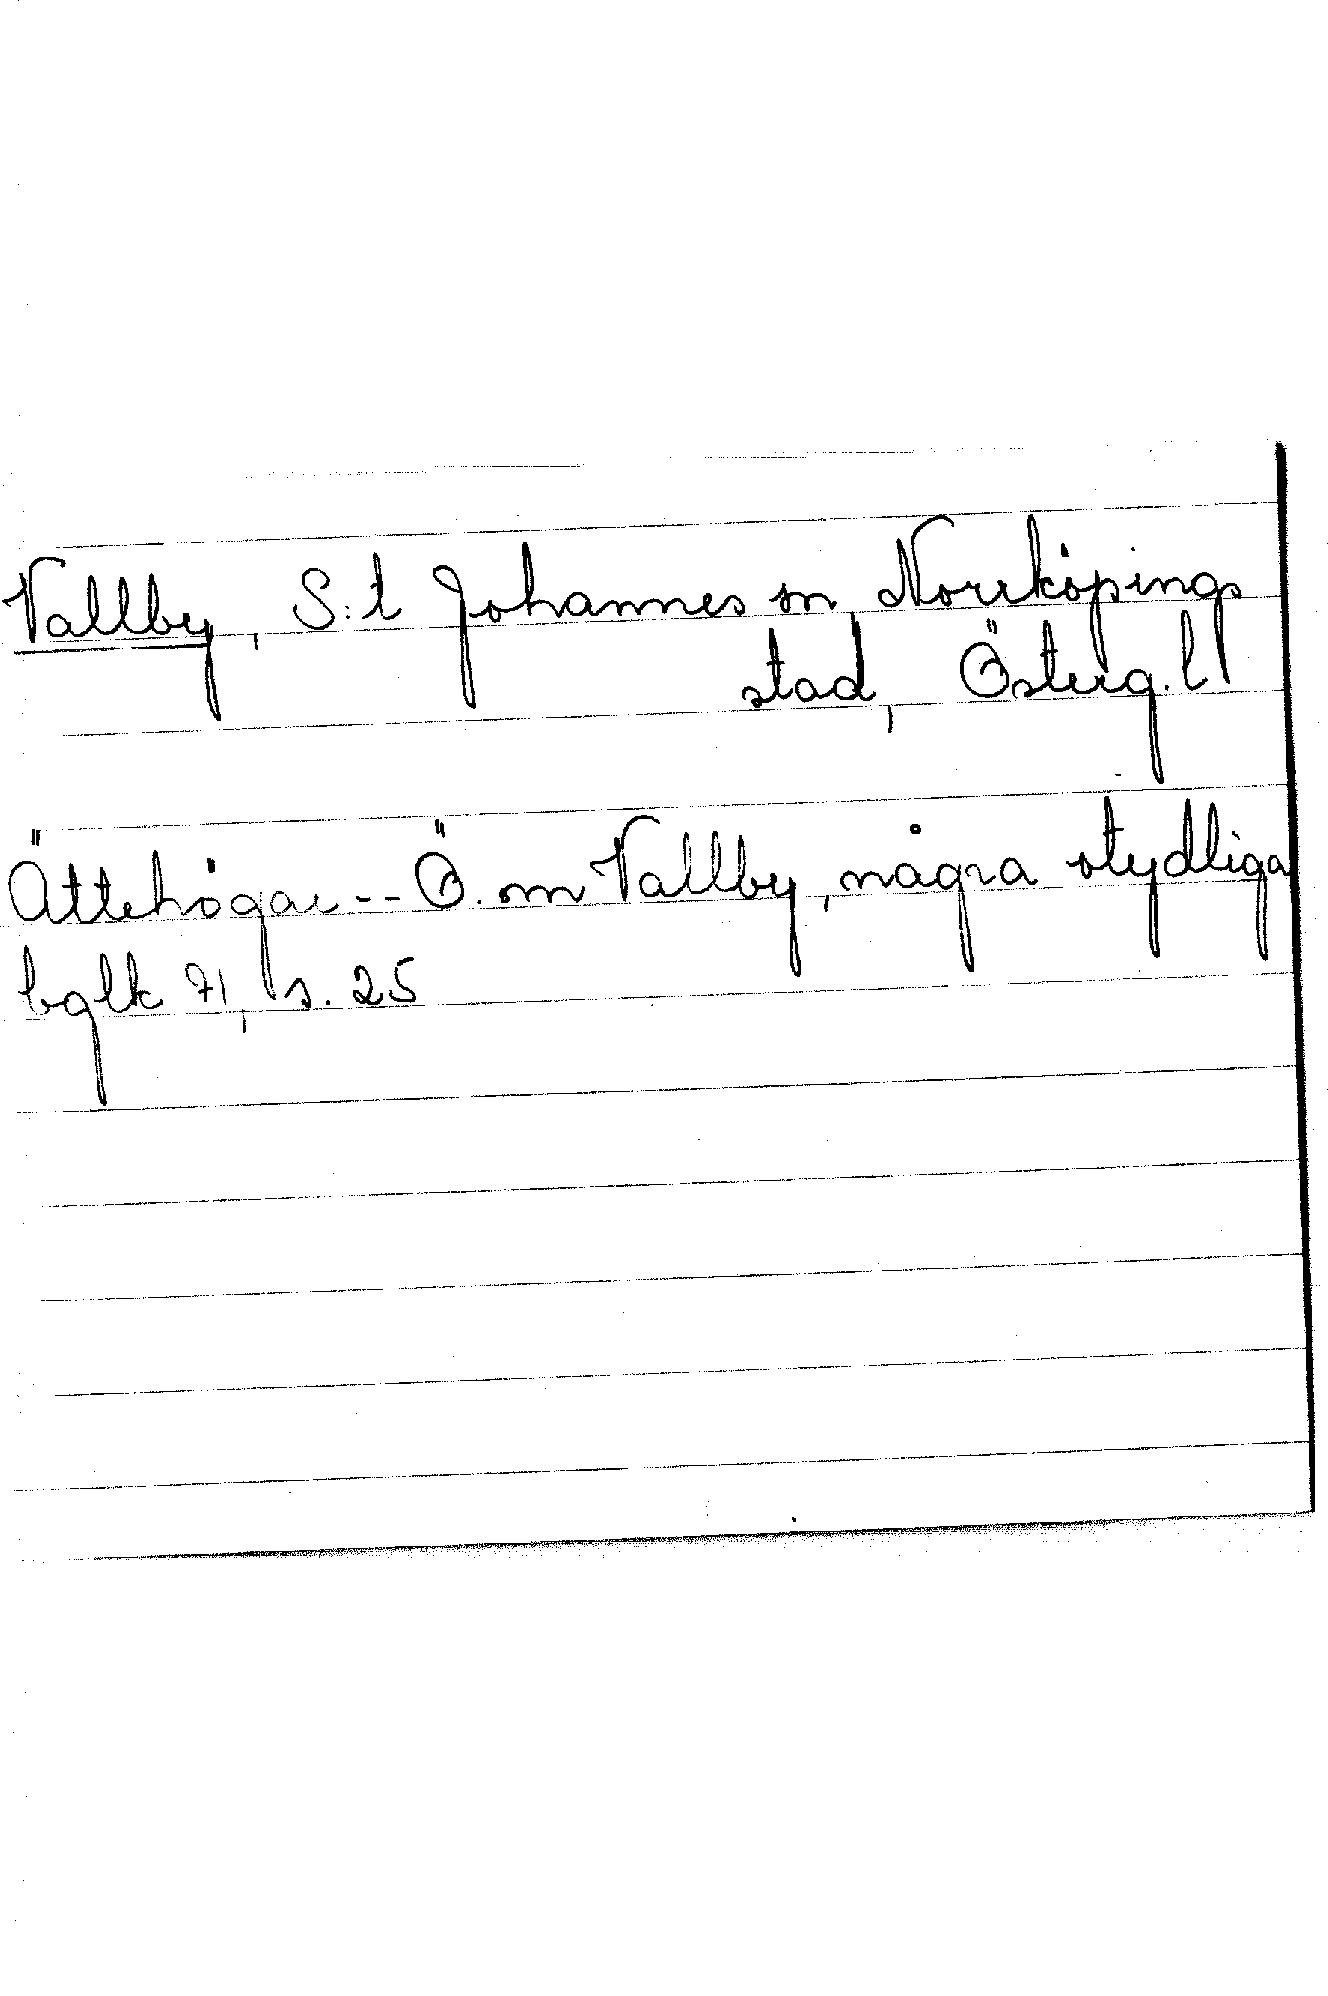 Vallby, S:t Johannes sn, Norrköpings
stad, Österg.l
Ättehögar -- Ö. om Vallby, några otydliga
bglk 71, s. 25